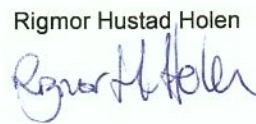 Rigmor Hustad Holen
Rigmor H. Holen